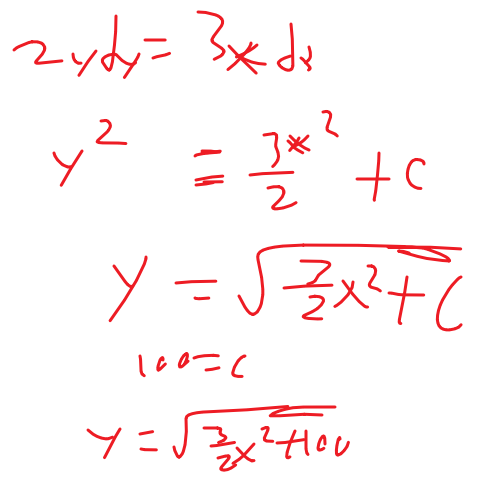 2ydy = 3xdx
y² = 3x²/2 + C
y = √(3/2 x² + C)
100 = C
y = √(3/2 x² + 100)